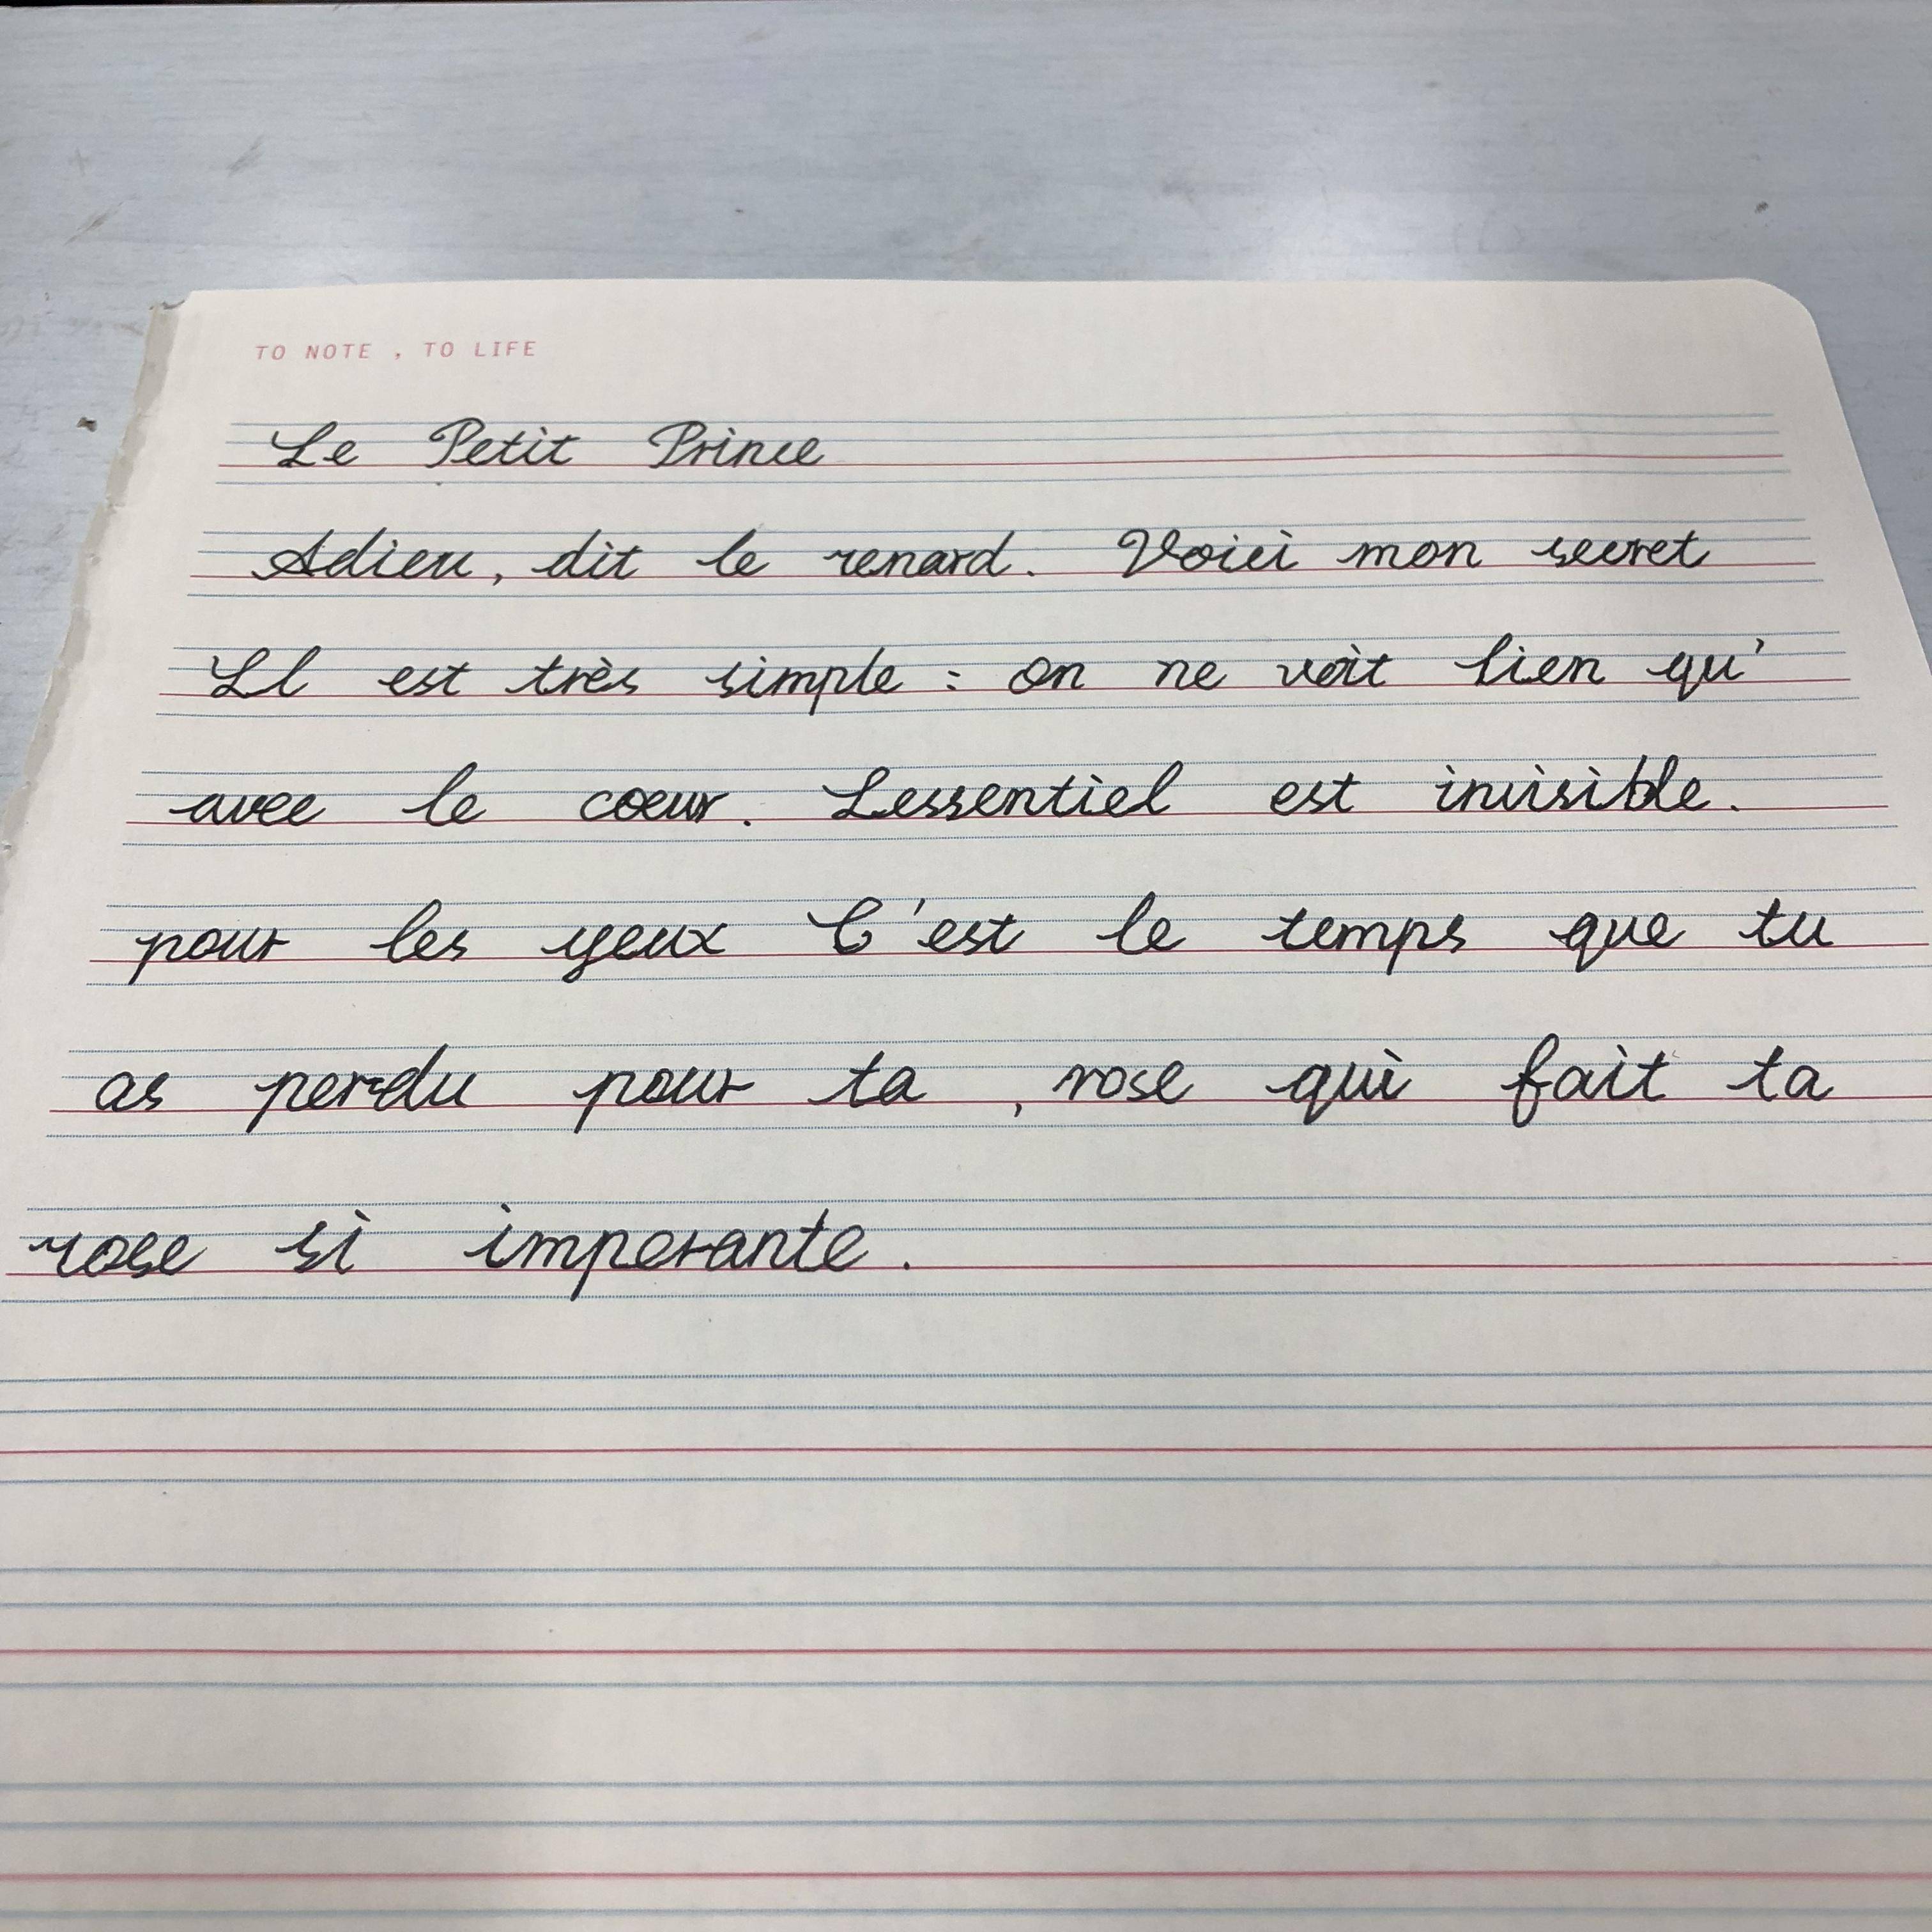 TO NOTE , TO LIFE
Le Petit Prince
Adieu, dit le renard. Voici mon secret
Il est très simple : on ne voit lien qu'
avec le cœur. Lessentiel est invisible.
pour les yeux C'est le temps que tu
as perdu pour ta , rose qui fait ta
rose si imperante.